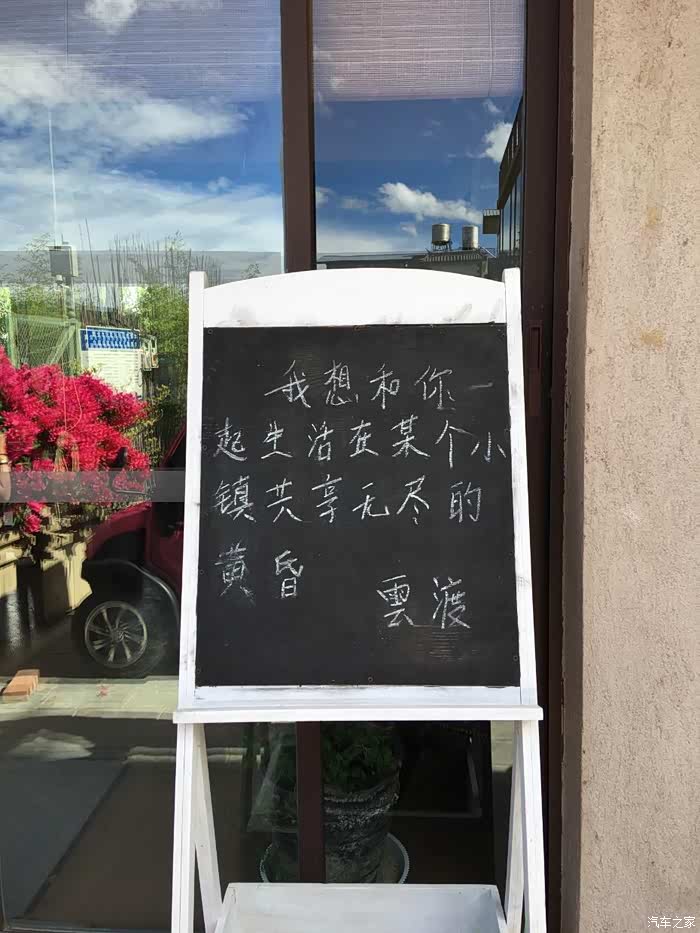 我想和你一
起生活在某个小
镇共享无尽的
黄昏
雲渡
汽车之家